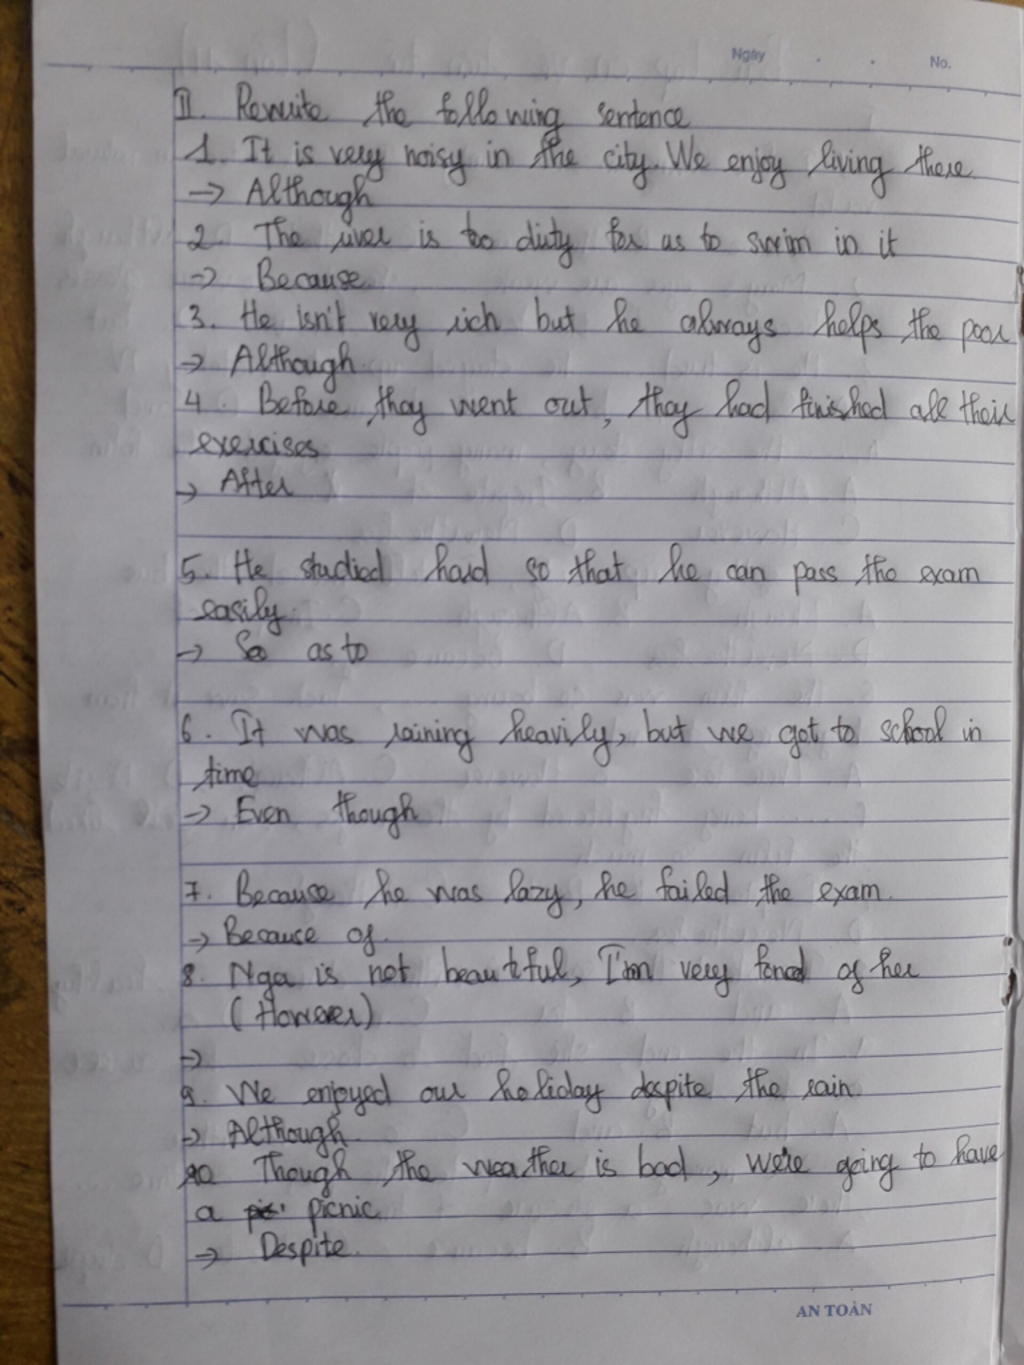 Ngày No.
II. Rewrite the following sentence
1. It is very noisy in the city. We enjoy living there
-> Although
2. The river is too dirty for us to swim in it
-> Because
3. He isn't very rich but he always helps the poor
-> Although
4. Before they went out, they had finished all their
exercises
-> After
5. He studied hard so that he can pass the exam
easily.
-> So as to
6. It was raining heavily, but we got to school in
time
-> Even though
7. Because he was lazy, he failed the exam.
-> Because of
8. Nga is not beautiful, I'm very fond of her
(However)
->
9. We enjoyed our holiday despite the rain.
-> Although
10 Though the weather is bad, we're going to have
a picnic
-> Despite
AN TOÀN